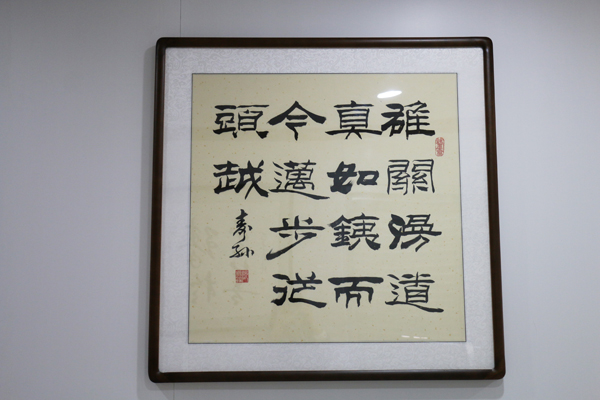 雄關漫道
真如鐵而
今邁步從
頭越
壽孙